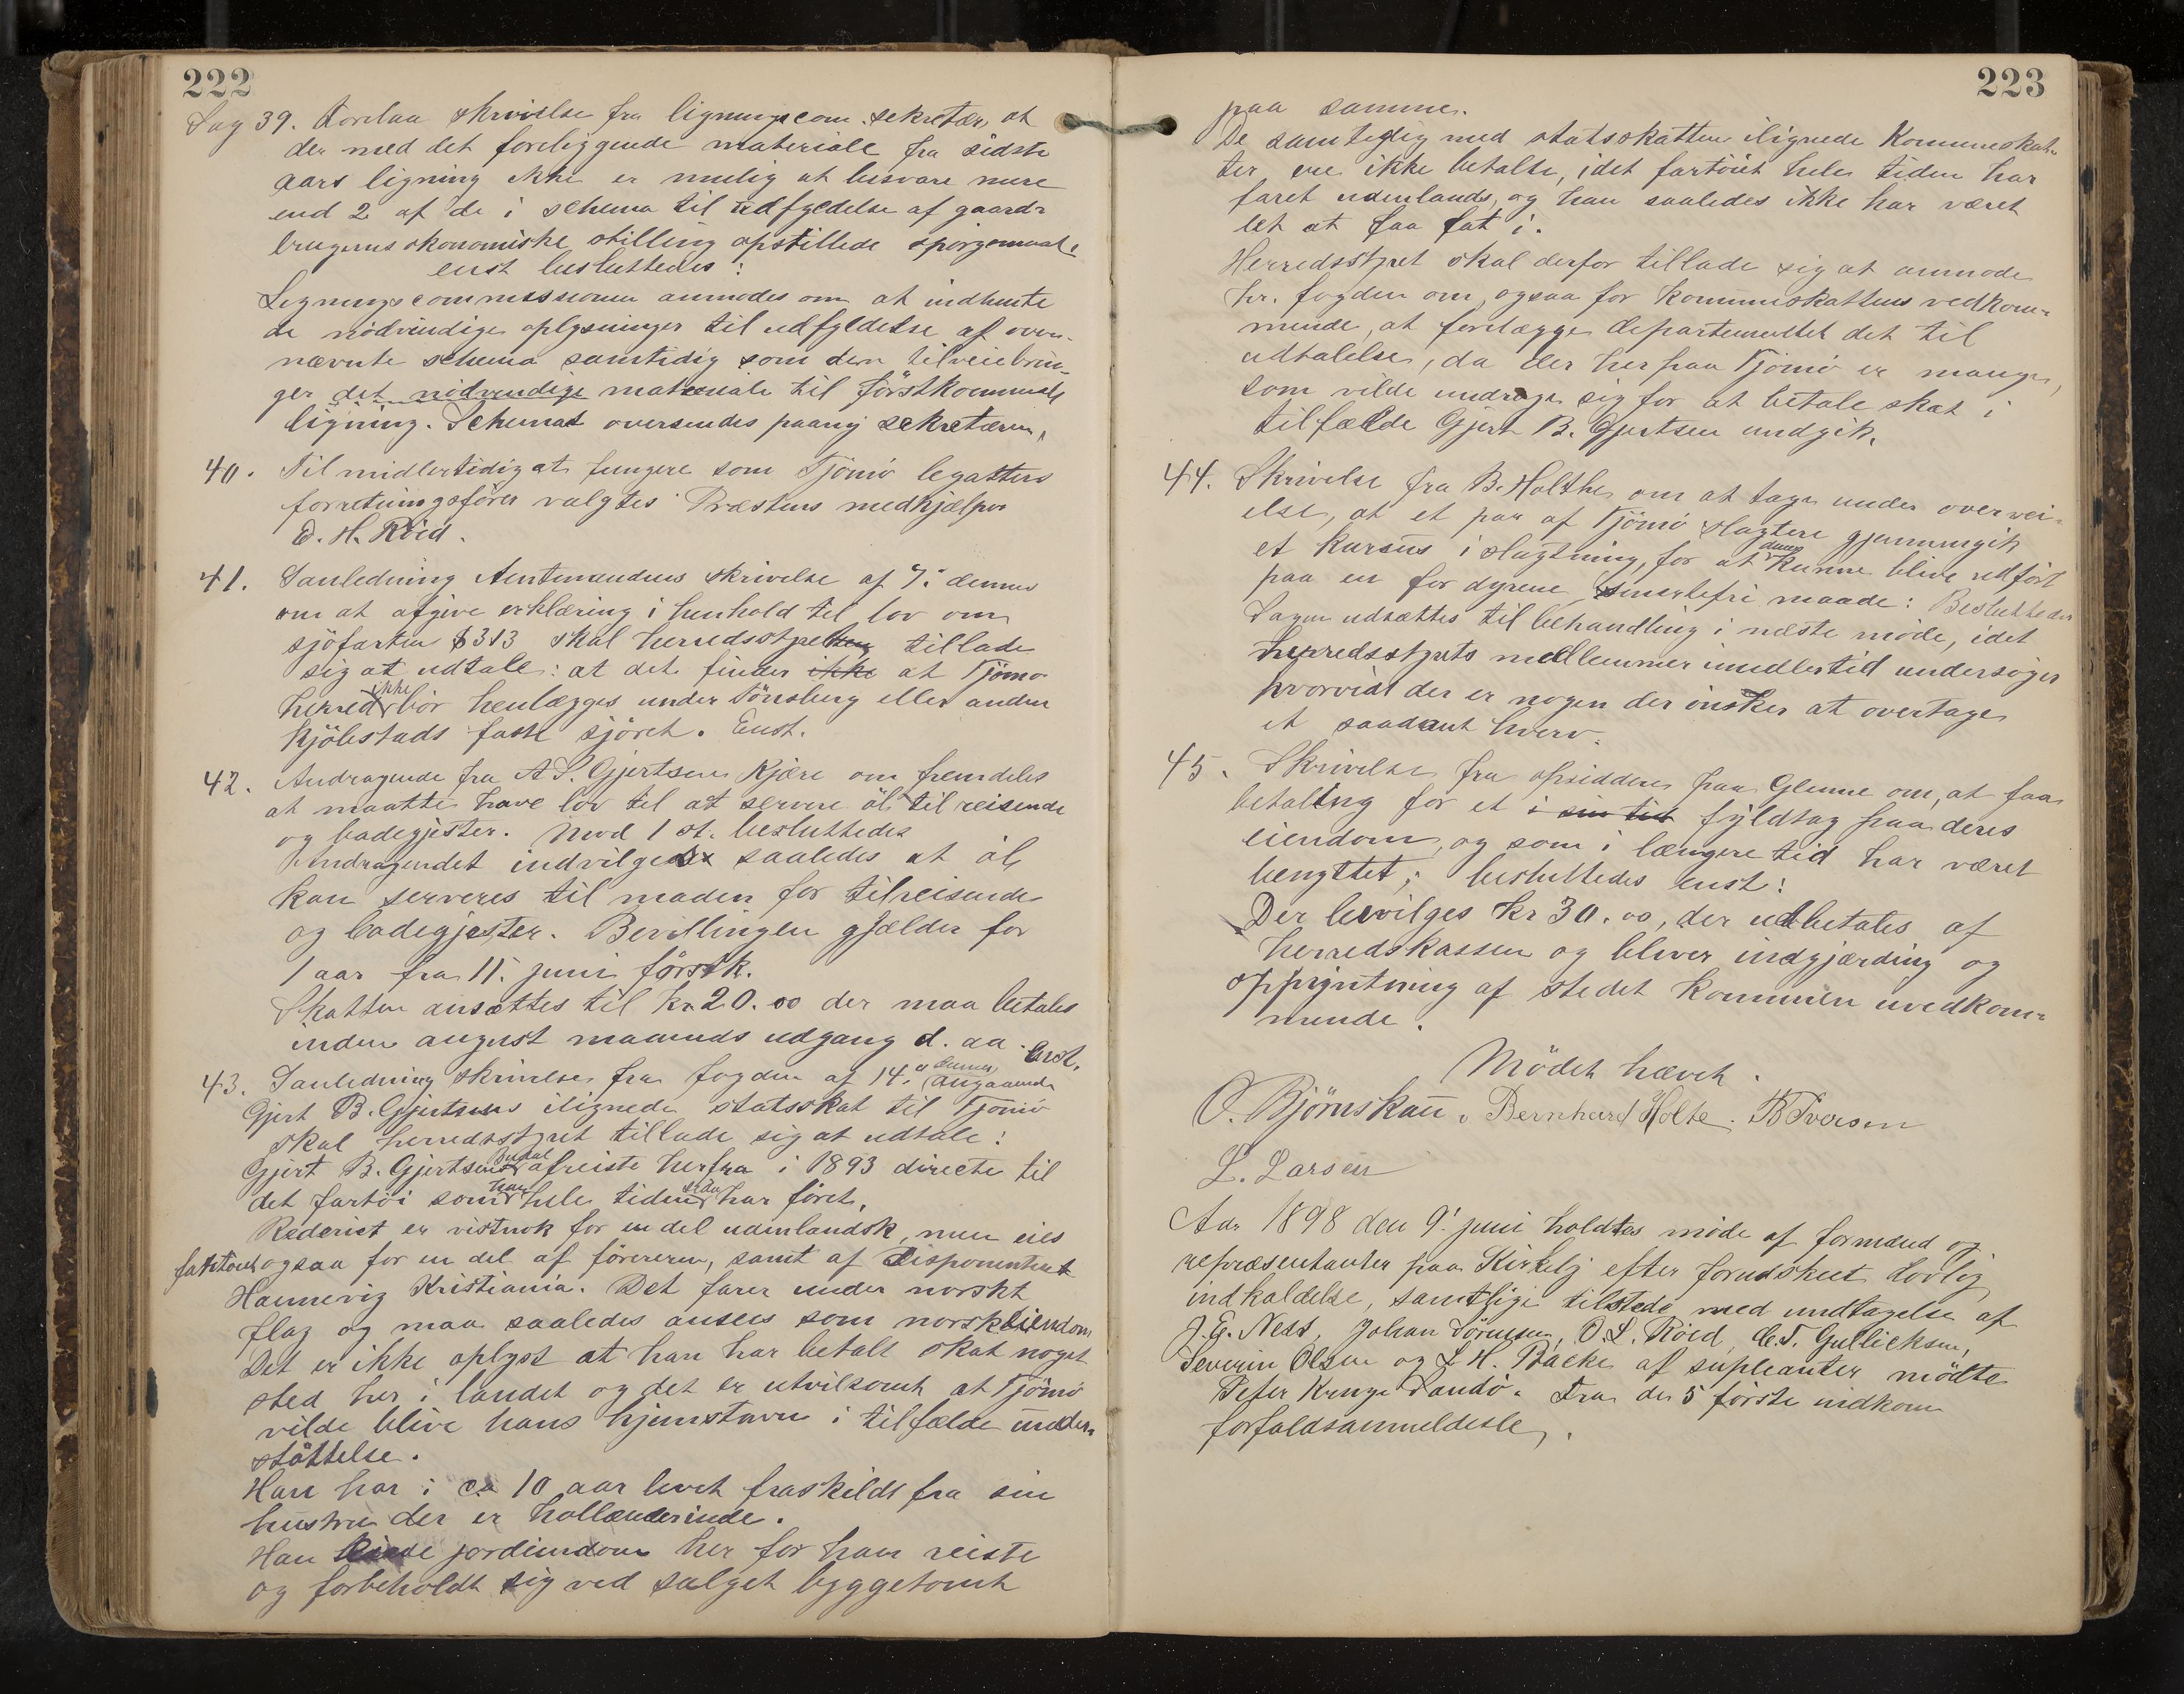 222
Sag 39. Forelaa skrivelse fra ligningscom. sekretær, at
der med det foreliggende materiale fra sidste
aars ligning ikke er mulig at besvare mere
end 2 af de i schema til udfyldelse af gaard-
brugerens økonomiske stilling opstillede spørgsmaal
enst besluttedes:
Ligningscommissionen anmodes om at indhente
de nødvendige oplysninger til udfyldelse af oven-
nævnte schema samtidig som den tilveiebrin-
ger det nødvendige materiale til førstkommende
ligning. Schemat oversendes paany sekretæren.
40. Til midlertidig at fungere som Tjömö legatters
forretningsfører valgtes Præstens medhjælper
O. H. Röed.
41. I anledning Amtmandens skrivelse af 7. dennes
om at afgive erklæring i henhold til lov om
sjöfarten § 313 skal herredsstyret tillade
sig at udtale: at det finder ikke at Tjömö
herred ikke bör henlægges under Tönsberg eller anden
kjöbstads faste sjöret. Enst.
42. Andragende fra A S. Gjertsen Kjære om fremdeles
at maatte have lov til at servere öl til reisende
og badegjester. Mod 1 st. besluttedes
Andragendet indvilges saaledes at öl
kan serveres til maden for tilreisende
og badegjester. Bevillingen gjælder for
1 aar fra 11. juni förstk.
Skatten ansættes til kr. 20.00 der maa betales
inden august maaneds udgang d. aa. Enst.
43. I anledning skrivelse fra fogden af 14. dennes angaaende
Gjert B. Gjertsens ilignede statsskat til Tjömö
skal herredsstyret tillade sig at udtale:
Gjert B. Gjertsen Budal afreiste herfra i 1893 directe til
det fartöi som han hele tiden siden har föret.
Rederiet er vistnok for en del udenlandsk, men eies
fartöiet ogsaa for en del af föreren, samt af Disponenten
Hannevig Kristiania. Det farer under norskt
flag og maa saaledes ansees som norsk eiendom
Det er ikke oplyst at han har betalt skat noget
sted her i landet og det er utvilsomt at Tjömö
vilde blive hans hjemstavn i tilfælde under-
støttelse.
Han har i ca 10 aar levet fraskildt fra sin
hustru der er hollænderinde.
Han eiede jordeiendom her før han reiste
og forbeholdt sig ved salget byggetomt
223
paa samme.
De samtidig med statsskatten ilignede Kommuneskat-
ter ere ikke betalte, idet fartöiet hele tiden har
faret udenlands, og han saaledes ikke har været
let at faa fat i.
Herredsstyret skal derfor tillade sig at anmode
hr. fogden om, ogsaa for kommuneskattens vedkom-
mende, at forelægge departementet det til
udtalelse, da der her paa Tjömö er mange,
som vilde unddrage sig for at betale skat i
tilfælde Gjert B. Gjertsen undgik.
44. Skrivelse fra B. Holthe om at tage under overvei-
else, at et par af Tjömö slagtere gjennemgik
et kursus i slagtning, for at denne kunne blive udfört
paa en for dyrene smertefri maade: Besluttedes
Sagen udsættes til behandling i næste möde, idet
herredsstyrets medlemmer imidlertid undersöger
hvorvidt der er nogen der önsker at overtage
et saadant hverv.
45. Skrivelse fra opsidderne paa Glenne om, at faa
betaling for et i sin tid fyldtag paa deres
eiendom, og som i længere tid har været
benyttet; besluttedes enst:
Der bevilges kr 30.00, der udbetales af
herredskassen og bliver indgjærding og
oppyntning af stedet kommunen uvedkom-
mende.
Mödet hævet.
O. Björnskau. Bernhard Holte. B Iversen
L. Larsen
Aar 1898 den 9. juni holdtes möde af formænd og
repræsentanter paa Kirkely efter forudskeet lovlig
indkaldelse, samtlige tilstede med undtagelse af
J. E. Ness, Johan Sörensen, O. L. Röed, C. T. Gullicksen,
Severin Olsen og L H. Backe af supleanter mödte
Peter Krüge Sandö. Fra de 5 förste indkom
forfaldsanmeldelse.